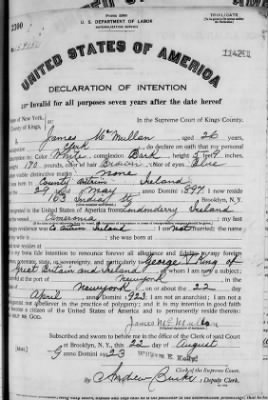 TRIPLICATE
U. S. DEPARTMENT OF LABOR
NATURALIZATION SERVICE
UNITED STATES OF AMERICA
DECLARATION OF INTENTION
Invalid for all purposes seven years after the date hereof
State of New York,
County of Kings,
In the Supreme Court of Kings County.
I, James McMullan, aged 26 years,
occupation Clerk, do declare on oath that my personal
description is: Color White, complexion Dark, height 5 feet 9 inches,
weight 170 pounds, color of hair Brown, color of eyes Blue
other visible distinctive marks None
County Antrim Ireland
on the day of May, anno Domini 1897; I now reside
at 163 India St, Brooklyn, N.Y.
I emigrated to the United States of America from Londonderry Ireland
on the vessel Cameronia; my last
foreign residence was Co Antrim Ireland; I am Not married; the name
; she was born at
It is my bona fide intention to renounce forever all allegiance and fidelity to any foreign
prince, potentate, state, or sovereignty, and particularly to George V King of
Great Britain and Ireland, of whom I am now a subject;
I arrived at the port of New York, in the
State of New York, on or about the 22 day
of April, anno Domini 1923; I am not an anarchist; I am not a
polygamist nor a believer in the practice of polygamy; and it is my intention in good faith
to become a citizen of the United States of America and to permanently reside therein:
SO HELP ME GOD.
James McMullan
Subscribed and sworn to before me in the office of the Clerk of said Court
at Brooklyn, N. Y., this 22 day of August
anno Domini 1923
William E. Kelly
Clerk of the Supreme Court.
By Deputy Clerk.